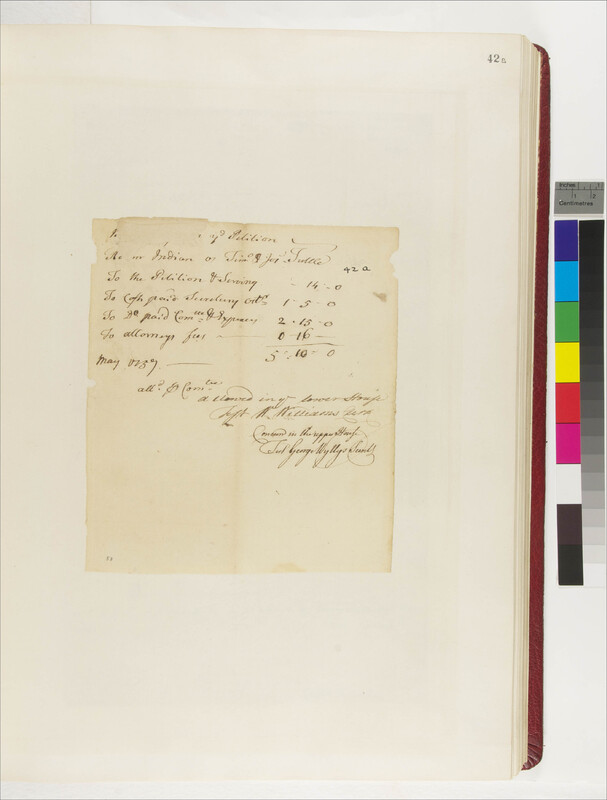 42a
Petition
Indian Jos Tuttle
42a
To the Petition & Serving - 14 - 0
To Cash paid Secretary 1 - 5 - 0
To Do paid Comtee & Expences 2 - 15 - 0
To attorneys fees 0 - 16 -
5 - 10 - 0
May
Comtee
allowed in ye lower House
Test W Williams Clerk
Concurd in the upper House
Test George Wyllys Secrety
Centimetres